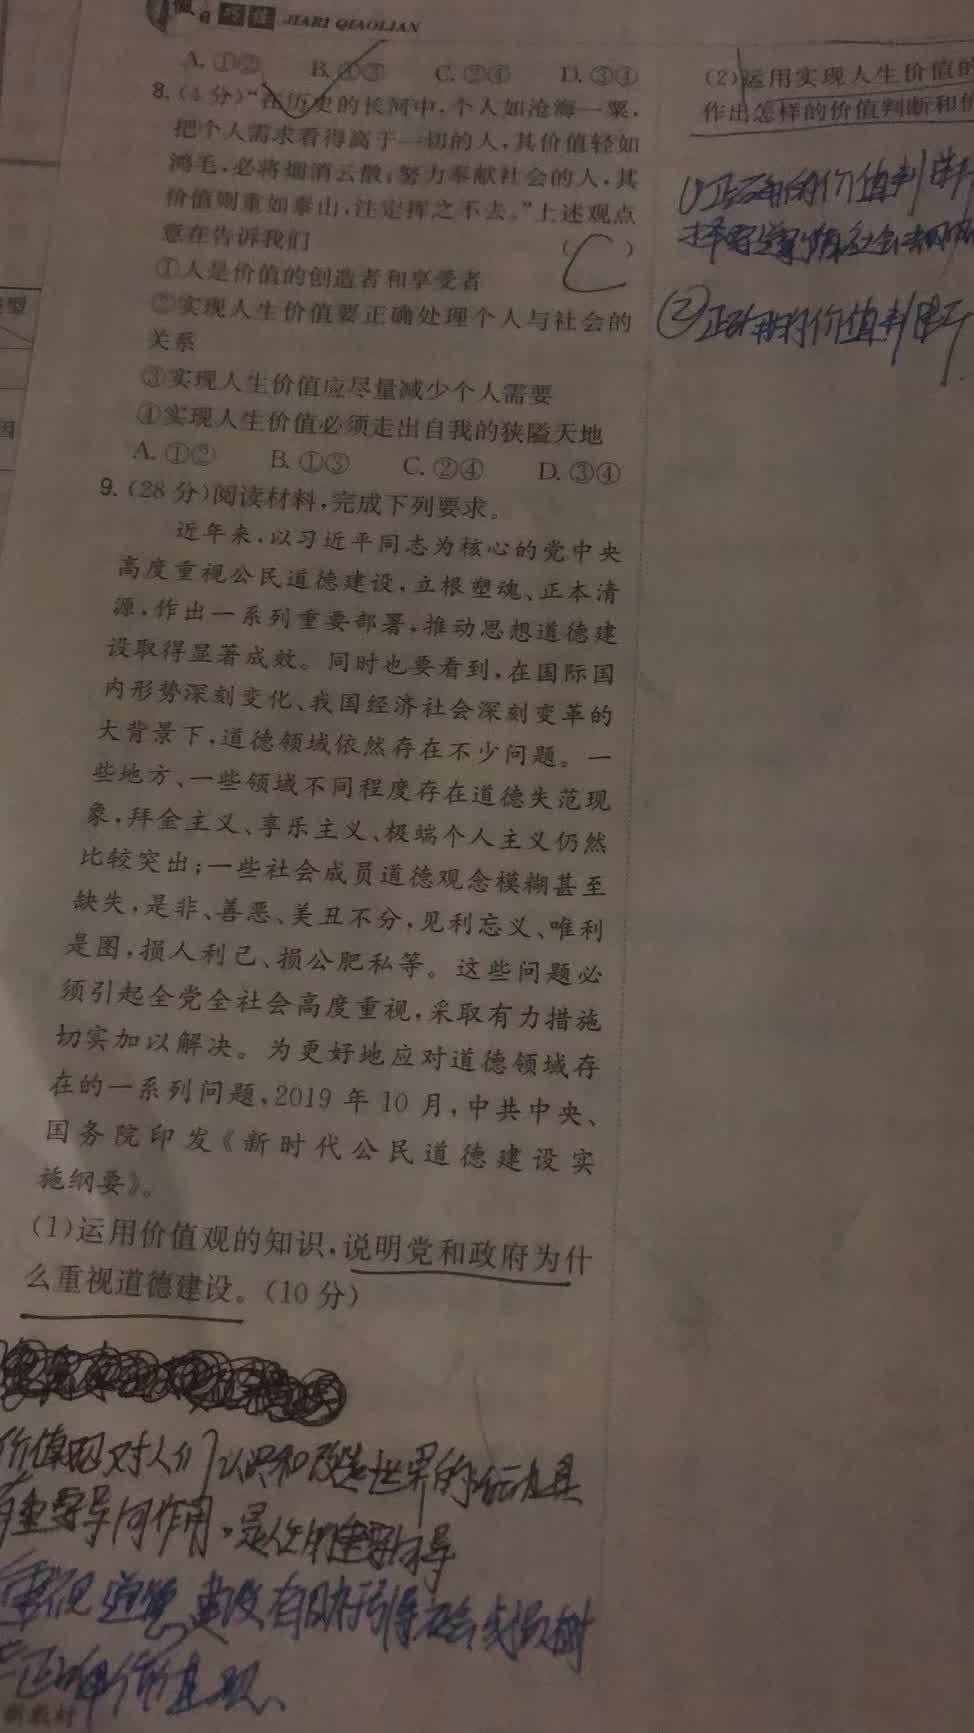 巧练 JIARI QIAOLIAN
A. ①② B. ①③ C. ②④ D. ③④
8. (4 分)“在历史的长河中,个人如沧海一粟,
把个人需求看得高于一切的人,其价值轻如
鸿毛,必将烟消云散;努力奉献社会的人,其
价值则重如泰山,注定挥之不去。”上述观点
意在告诉我们 (C)
①人是价值的创造者和享受者
②实现人生价值要正确处理个人与社会的
关系
③实现人生价值应尽量减少个人需要
④实现人生价值必须走出自我的狭隘天地
A. ①② B. ①③ C. ②④ D. ③④
9. (28 分)阅读材料,完成下列要求。
近年来,以习近平同志为核心的党中央
高度重视公民道德建设,立根塑魂、正本清
源,作出一系列重要部署,推动思想道德建
设取得显著成效。同时也要看到,在国际国
内形势深刻变化、我国经济社会深刻变革的
大背景下,道德领域依然存在不少问题。一
些地方、一些领域不同程度存在道德失范现
象,拜金主义、享乐主义、极端个人主义仍然
比较突出;一些社会成员道德观念模糊甚至
缺失,是非、善恶、美丑不分,见利忘义、唯利
是图,损人利己、损公肥私等。这些问题必
须引起全党全社会高度重视,采取有力措施
切实加以解决。为更好地应对道德领域存
在的一系列问题,2019 年 10 月,中共中央、
国务院印发《新时代公民道德建设实
施纲要》。
(1)运用价值观的知识,说明党和政府为什
么重视道德建设。(10 分)
价值观对人们认识和改造世界的活动具
有重要导向作用,是人生的重要向导
重视道德建设有助于引导社会成员树
正确价值观、
新教材
(2)运用实现人生价值的
作出怎样的价值判断和价
①正确的价值判断
社会
②正确的价值判断